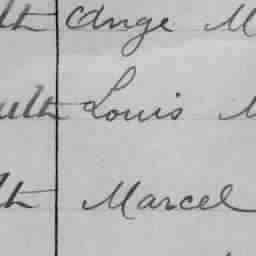 lth Ange M
ulth Louis M
lth Marcel